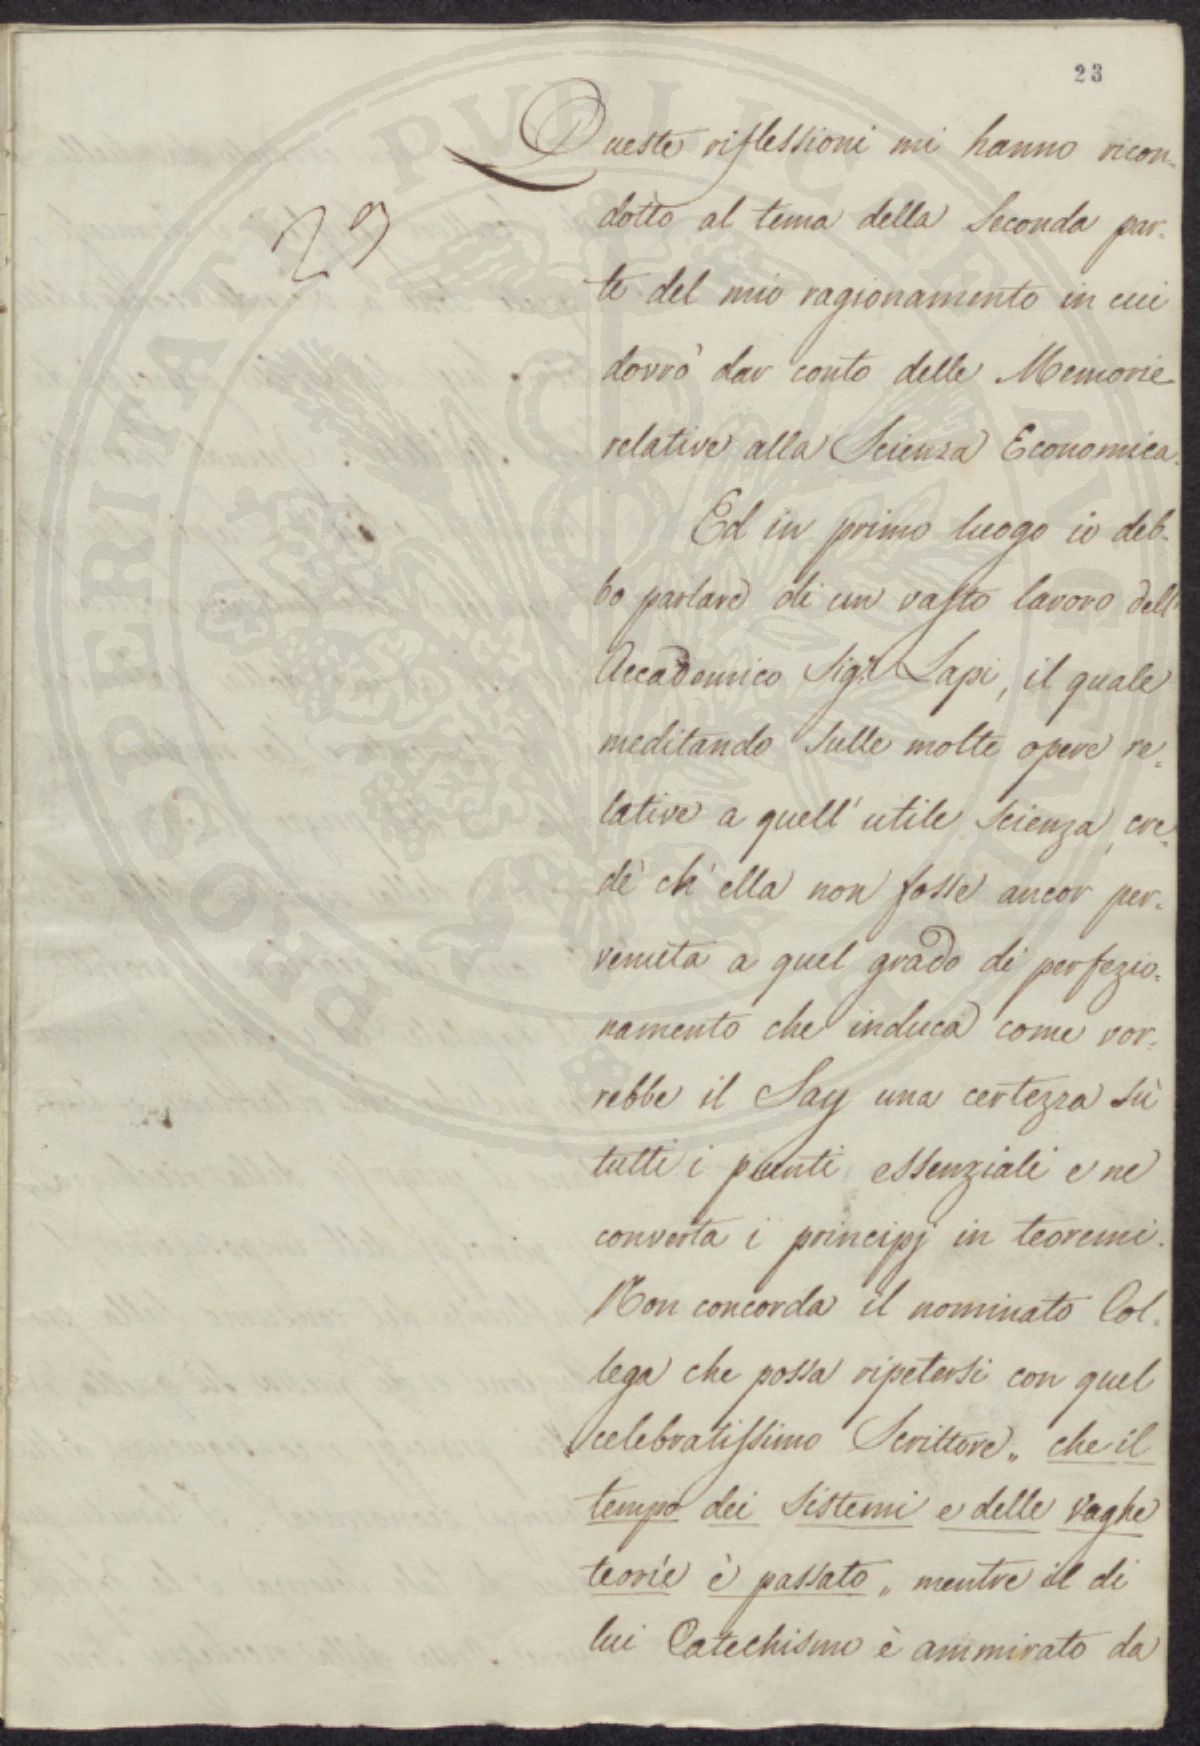 23
23
Queste riflessioni mi hanno ricon-
dotto al tema della Seconda par-
te del mio ragionamento in cui
dovrò dar conto delle Memorie
relative alla Scienza Economica.
Ed in primo luogo io deb-
bo parlare di un vasto lavoro dell'
Accademico Sig.r Lapi, il quale
meditando sulle molte opere re-
lative a quell' utile scienza, cre-
dè ch' ella non fosse ancor per-
venuta a quel grado di perfezio-
namento che induca come vor-
rebbe il Say una certezza sù
tutti i punti essenziali e ne
converta i principj in teoremi.
Non concorda il nominato Col-
lega che possa ripetersi con quel
celebratissimo Scrittore „ che il
tempo dei sistemi e delle vaghe
teorie è passato „ mentre il di
lui Catechismo è ammirato da
PROSPERITATI PUBLICAE AUGENDAE